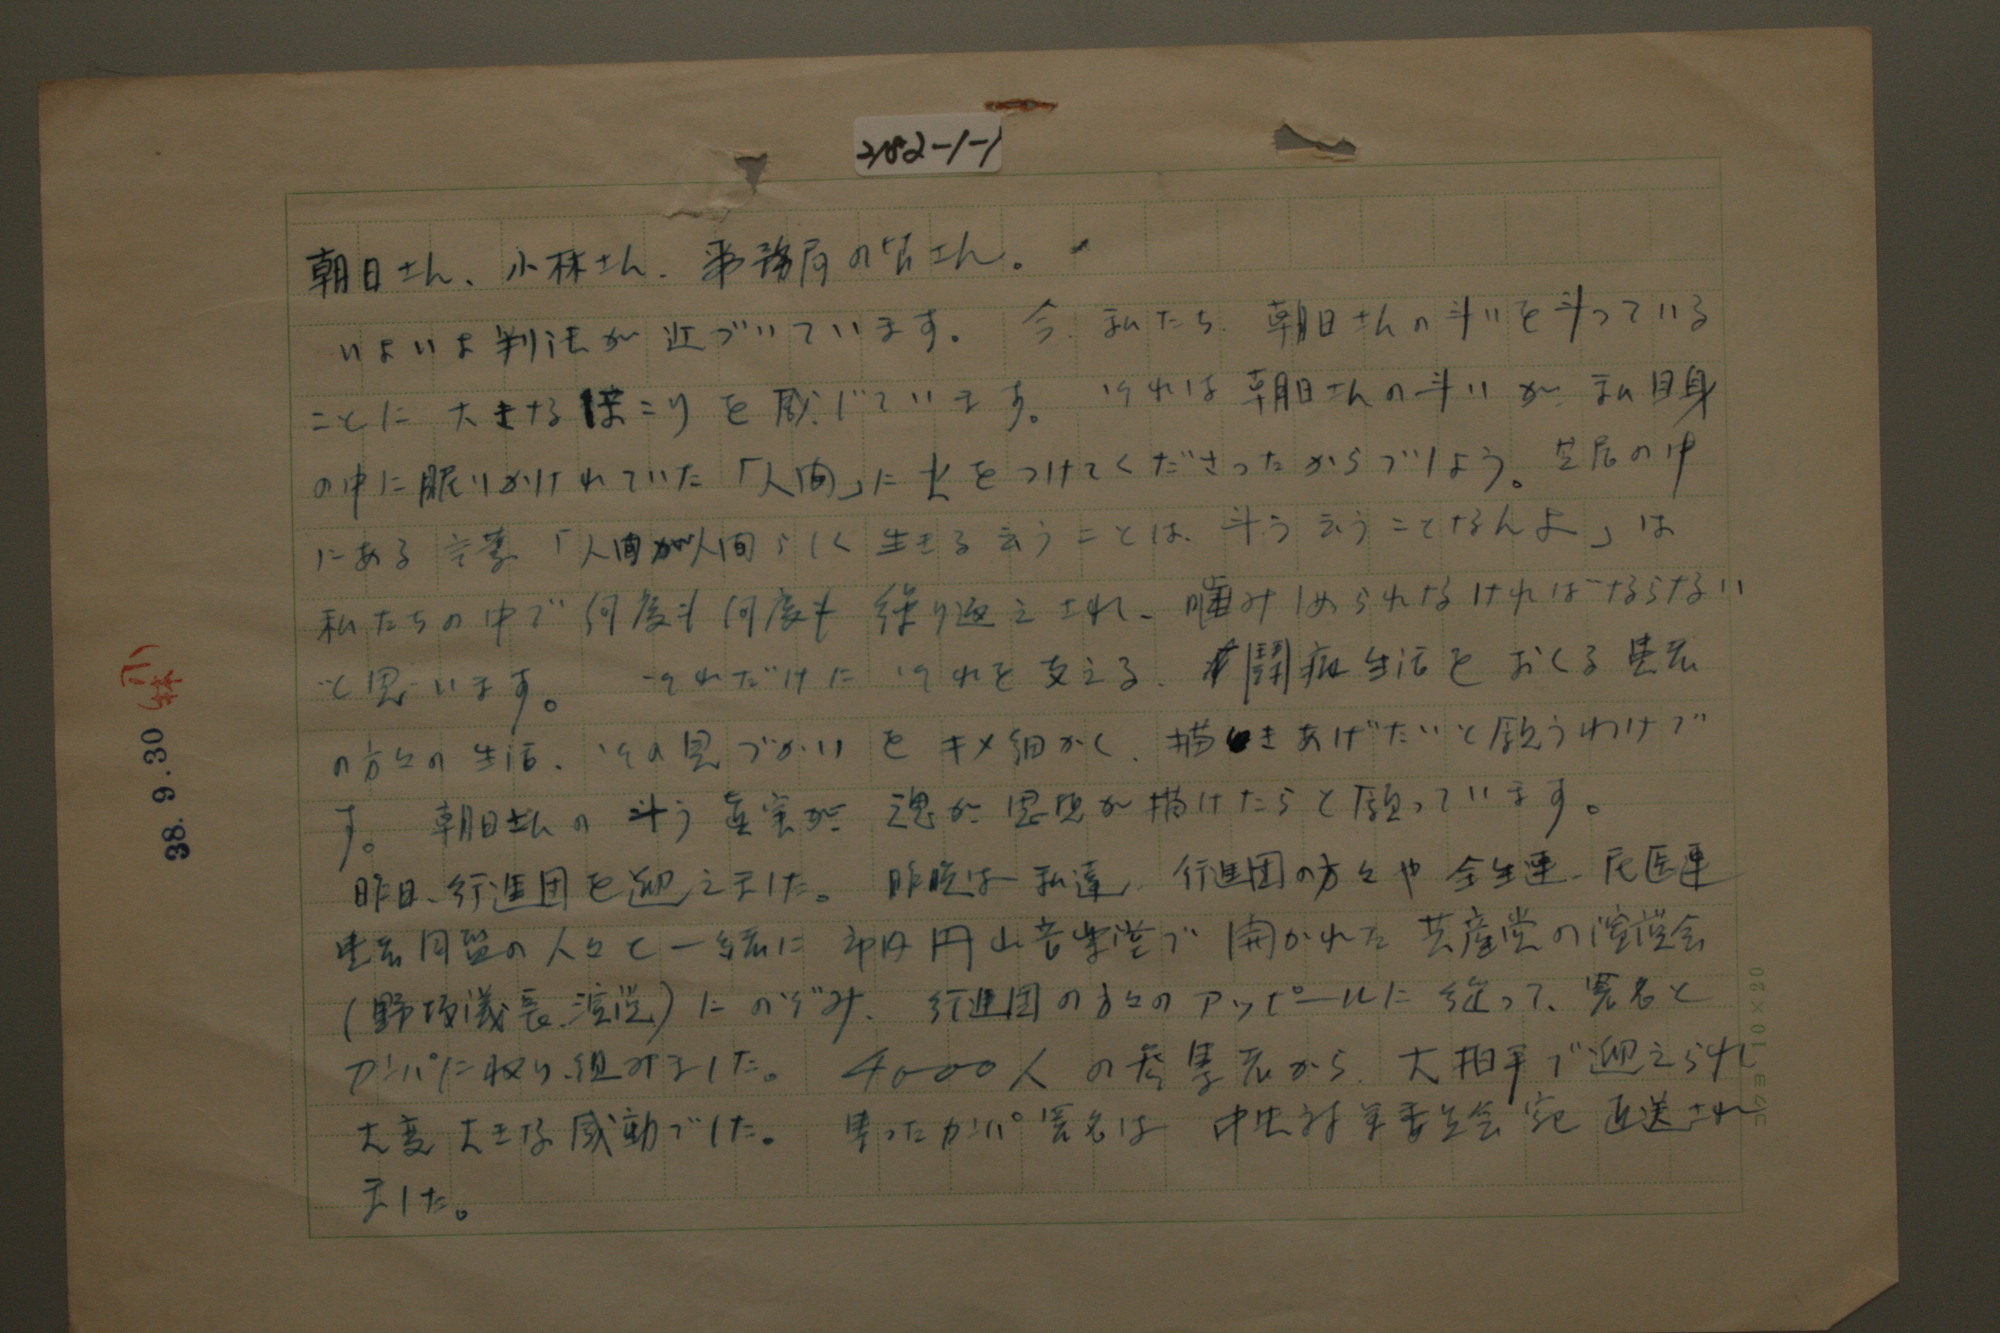 2182-1-1
朝日さん、小林さん、事務局の皆さん。
いよいよ判決が近づいています。今、私たち、朝日さんの斗いを斗っている
ことに大きなほこりを感じています。それは朝日さんの斗いが、私自身
の中に眠りかけれていた「人間」に火をつけてくださったからでしょう。芝居の中
にある言葉「人間が人間らしく生きる云うことは、斗う云うことなんよ」は
私たちの中で何度も何度も繰り返えされ、噛みしめられなければならない
と思います。それだけにそれを支える、闘病生活をおくる患者
の方々の生活、その息づかいをキメ細かく、描きあげたいと願うわけで
す。朝日さんの斗う真実が、魂が、思想が描けたらと願っています。
昨日、行進団を迎えました。昨晩は私達、行進団の方々や全生連、民医連
患者同盟の人々と一緒に円山音楽堂で開かれた共産党の演説会
(野坂議長、演説)にのぞみ、行進団の方々のアッピールに従って、署名と
カンパに取り組みました。4000人の参集者から、大拍手で迎えられ
大変大きな感動でした。集ったカンパ署名は中央対策委員会宛直送され
ました。
38.9.30
10×20